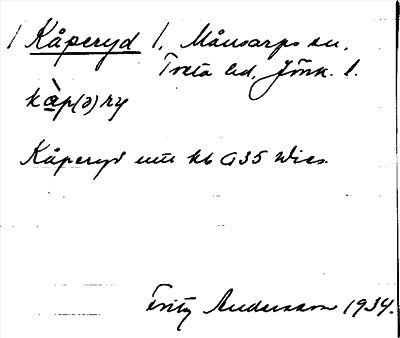 Kåperyd 1, Månsarps sn,
Tveta hd, Jönk. l.
kå̀p(ə)ry
Kåperyd
Fritz Andersson 1934.